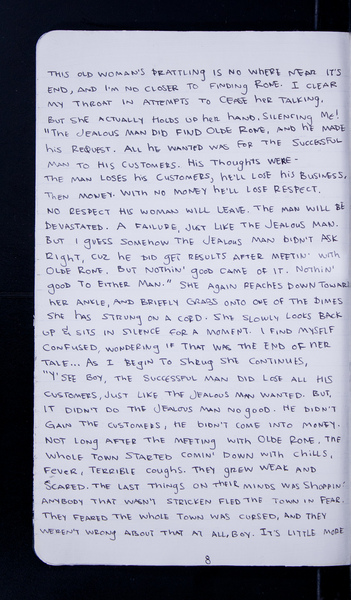 THIS OLD WOMAN'S PRATTLING IS NO WHERE NEAR IT'S
END, AND I'M NO CLOSER TO FINDING RONE. I CLEAR
MY THROAT IN ATTEMPTS TO CEASE HER TALKING,
BUT SHE ACTUALLY HOLDS UP HER HAND, SILENCING ME!
"THE JEALOUS MAN DID FIND OLDE RONE, AND HE MADE
HIS REQUEST. ALL HE WANTED WAS FOR THE SUCCESSFUL
MAN TO HIS CUSTOMERS. HIS THOUGHTS WERE -
THE MAN LOSES HIS CUSTOMERS, HE'LL LOSE HIS BUSINESS,
THEN MONEY. WITH NO MONEY HE'LL LOSE RESPECT.
NO RESPECT HIS WOMAN WILL LEAVE. THE MAN WILL BE
DEVASTATED. A FAILURE, JUST LIKE THE JEALOUS MAN.
BUT I GUESS SOMEHOW THE JEALOUS MAN DIDN'T ASK
RIGHT, CUZ HE DID GET RESULTS AFTER MEETIN' WITH
OLDE RONE. BUT NOTHIN' GOOD CAME OF IT. NOTHIN'
GOOD TO EITHER MAN." SHE AGAIN REACHES DOWN TOWARD
HER ANKLE, AND BRIEFLY GRABS ONTO ONE OF THE DIMES
SHE HAS STRUNG ON A CORD. SHE SLOWLY LOOKS BACK
UP & SITS IN SILENCE FOR A MOMENT. I FIND MYSELF
CONFUSED, WONDERING IF THAT WAS THE END OF HER
TALE... AS I BEGIN TO SHRUG SHE CONTINUES,
"Y'SEE BOY, THE SUCCESSFUL MAN DID LOSE ALL HIS
CUSTOMERS, JUST LIKE THE JEALOUS MAN WANTED. BUT,
IT DIDN'T DO THE JEALOUS MAN NO GOOD. HE DIDN'T
GAIN THE CUSTOMERS, HE DIDN'T COME INTO MONEY.
NOT LONG AFTER THE MEETING WITH OLDE RONE, THE
WHOLE TOWN STARTED COMIN' DOWN WITH CHILLS,
FEVER, TERRIBLE COUGHS. THEY GREW WEAK AND
SCARED. THE LAST THINGS ON THEIR MINDS WAS SHOPPIN'.
ANYBODY THAT WASN'T STRICKEN FLED THE TOWN IN FEAR.
THEY FEARED THE WHOLE TOWN WAS CURSED, AND THEY
WEREN'T WRONG ABOUT THAT AT ALL, BOY. IT'S LITTLE MORE
8